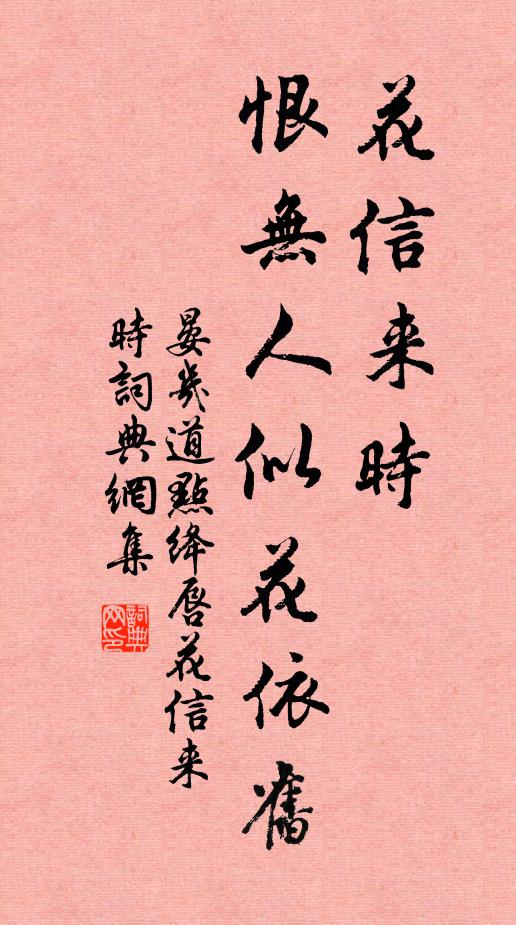 花信来時
恨無人似花依舊
晏幾道點絳唇花信来
時詞典網集
詞典
网印